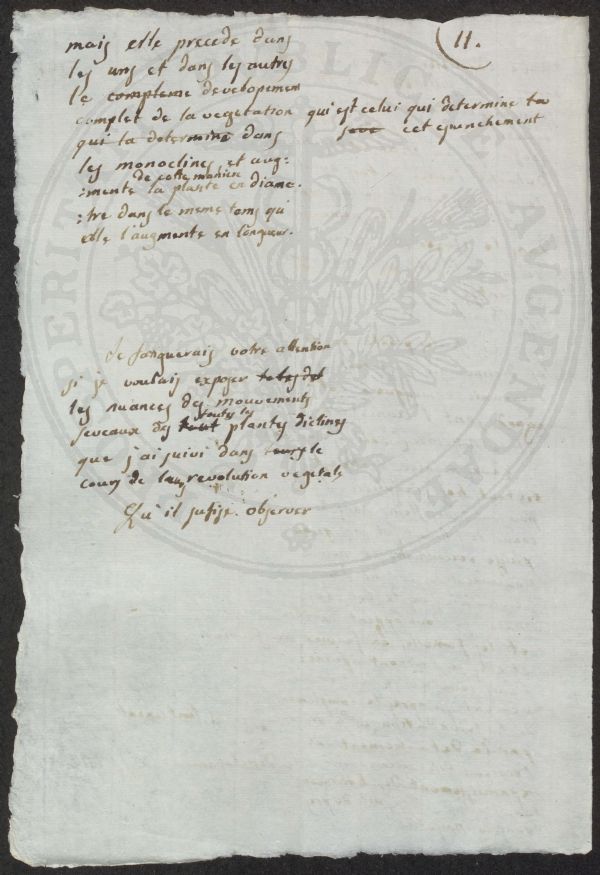 11.
mais elle precede dans
les uns et dans les autres
le compleme developemen
complet de la vegetation qui est celui qui determine ta
qui la determine dans seve cet epanchement
les monoclines, et aug:
de cette maniere
:mente la plante en diame.
:tre dans le meme tems qu'
elle l'augmente en longueur.
Je fatiguerais votre attention
si je voulais exposer
les nuances des mouvements
toutes les
seveaux des tout plantes diclines
que j'ai suivi dans tout le
cours de leurs revolution vegetale
Qu'il sufise observer
PERIT PUBLICAE AUGENDAE